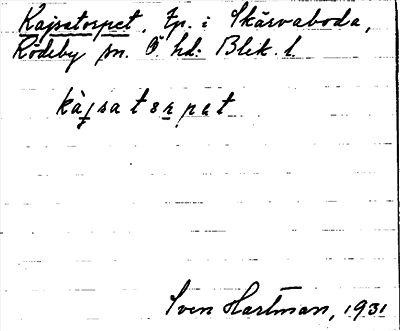 Kajsatorpet, Tp. i Skärvaboda,
Rödeby sn. Ö hd. Blek. l.
kàjsatorpat
Sven Hartman, 1931